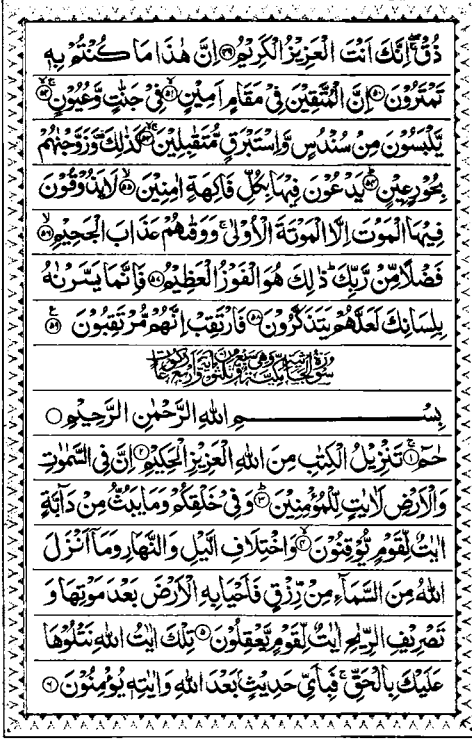 ذُقْ ۚ اِنَّكَ اَنْتَ الْعَزِيْزُ الْكَرِيْمُ ﴿۴۹﴾ اِنَّ هٰذَا مَا كُنْتُمْ بِهٖ
تَمْتَرُوْنَ ﴿۵۰﴾ اِنَّ الْمُتَّقِيْنَ فِيْ مَقَامٍ اَمِيْنٍ ﴿۵۱﴾ فِيْ جَنّٰتٍ وَّعُيُوْنٍ ﴿۵۲﴾
يَّلْبَسُوْنَ مِنْ سُنْدُسٍ وَّاِسْتَبْرَقٍ مُّتَقٰبِلِيْنَ ﴿۵۳﴾ كَذٰلِكَ وَزَوَّجْنٰهُمْ
بِحُوْرٍ عِيْنٍ ﴿۵۴﴾ يَدْعُوْنَ فِيْهَا بِكُلِّ فَاكِهَةٍ اٰمِنِيْنَ ﴿۵۵﴾ لَا يَذُوْقُوْنَ
فِيْهَا الْمَوْتَ اِلَّا الْمَوْتَةَ الْاُوْلٰى ۚ وَوَقٰىهُمْ عَذَابَ الْجَحِيْمِ ﴿۵۶﴾
فَضْلًا مِّنْ رَّبِّكَ ؕ ذٰلِكَ هُوَ الْفَوْزُ الْعَظِيْمُ ﴿۵۷﴾ فَاِنَّمَا يَسَّرْنٰهُ
بِلِسَانِكَ لَعَلَّهُمْ يَتَذَكَّرُوْنَ ﴿۵۸﴾ فَارْتَقِبْ اِنَّهُمْ مُّرْتَقِبُوْنَ ﴿۵۹﴾
بِسْمِ اللّٰهِ الرَّحْمٰنِ الرَّحِيْمِ
حٰمٓ ﴿۱﴾ تَنْزِيْلُ الْكِتٰبِ مِنَ اللّٰهِ الْعَزِيْزِ الْحَكِيْمِ ﴿۲﴾ اِنَّ فِي السَّمٰوٰتِ
وَالْاَرْضِ لَاٰيٰتٍ لِّلْمُؤْمِنِيْنَ ﴿۳﴾ وَفِيْ خَلْقِكُمْ وَمَا يَبُثُّ مِنْ دَآبَّةٍ
اٰيٰتٌ لِّقَوْمٍ يُّوْقِنُوْنَ ﴿۴﴾ وَاخْتِلَافِ الَّيْلِ وَالنَّهَارِ وَمَاۤ اَنْزَلَ
اللّٰهُ مِنَ السَّمَآءِ مِنْ رِّزْقٍ فَاَحْيَا بِهِ الْاَرْضَ بَعْدَ مَوْتِهَا وَ
تَصْرِيْفِ الرِّيٰحِ اٰيٰتٌ لِّقَوْمٍ يَّعْقِلُوْنَ ﴿۵﴾ تِلْكَ اٰيٰتُ اللّٰهِ نَتْلُوْهَا
عَلَيْكَ بِالْحَقِّ ۚ فَبِاَيِّ حَدِيْثٍۭ بَعْدَ اللّٰهِ وَاٰيٰتِهٖ يُؤْمِنُوْنَ ﴿۶﴾